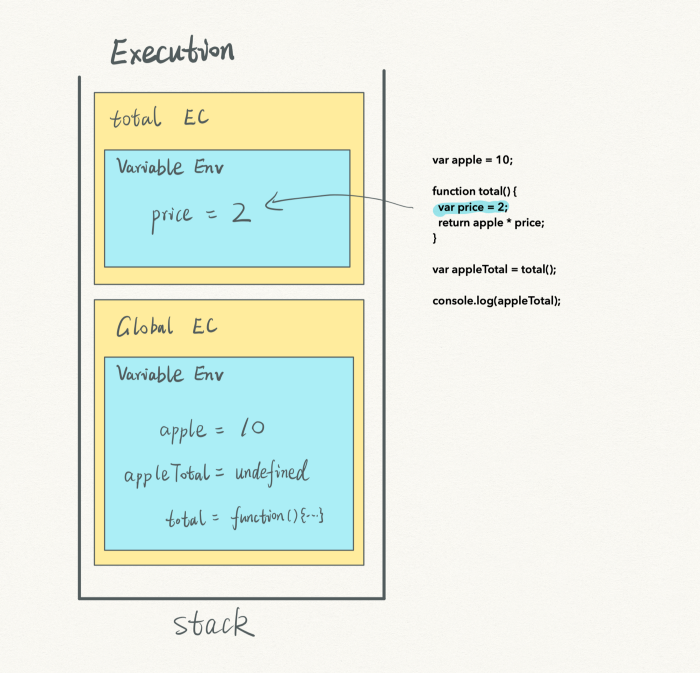 Execution
total EC
Variable Env
price = 2
Global EC
Variable Env
apple = 10
appleTotal = undefined
total = function(){...}
stack
var apple = 10;
function total() {
var price = 2;
return apple * price;
}
var appleTotal = total();
console.log(appleTotal);